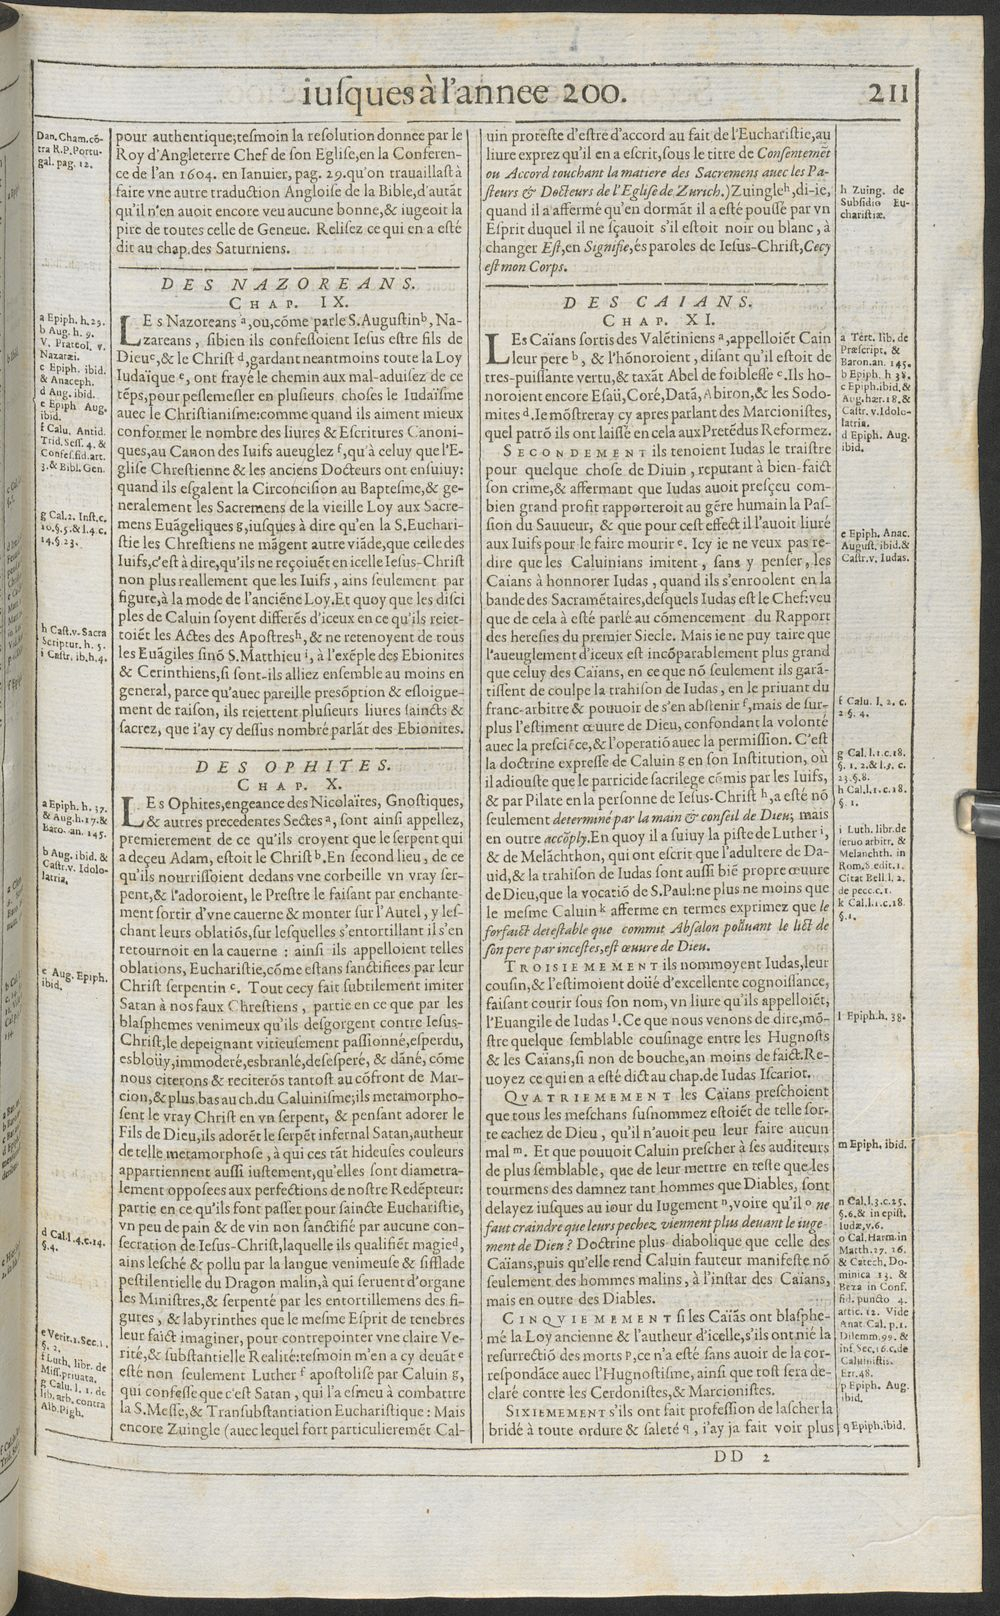 iuſques à l'annee 200.
211
Dan. Cham. cō-
tra R.P. Portu-
gal. pag. 12.
pour authentique; teſmoin la reſolution donnee par le
Roy d'Angleterre Chef de ſon Egliſe, en la Conferen-
ce de l'an 1604. en Ianuier, pag. 29. qu'on trauaillaſt à
faire vne autre traduction Angloiſe de la Bible, d'autāt
qu'il n'en auoit encore veu aucune bonne, & iugeoit la
pire de toutes celle de Geneue. Reliſez ce qui en a eſté
dit au chap. des Saturniens.
DES NAZOREANS.
CHAP. IX.
a Epiph. h. 29.
b Aug. h. 9.
V. Prateol. v.
Nazaræi.
c Epiph. ibid.
& Anaceph.
d Aug. ibid.
e Epiph Aug.
ibid.
f Calu. Antid.
Trid. Seſſ. 4. &
Confeſ. fid. art.
3. & Bibl. Gen.
g Cal. 2. Inſt. c.
10. §. 5. & l. 4. c.
14. § 23.
h Caſt. v. Sacra
Scriptur. h. 5.
i Caſtr. ib. h. 4.
LEs Nazoreans a, ou, cōme parle S. Auguſtin b, Na-
zareans, ſibien ils confeſſoient Ieſus eſtre fils de
Dieu c, & le Chriſt d, gardant neantmoins toute la Loy
Iudaïque e, ont frayé le chemin aux mal-aduiſez de ce
tēps, pour peſlemeſler en pluſieurs choſes le Iudaïſme
auec le Chriſtianiſme: comme quand ils aiment mieux
conformer le nombre des liures & Eſcritures Canoni-
ques, au Canon des Iuifs aueuglez f, qu'à celuy que l'E-
gliſe Chreſtienne & les anciens Docteurs ont enſuiuy:
quand ils eſgalent la Circonciſion au Bapteſme, & ge-
neralement les Sacremens de la vieille Loy aux Sacre-
mens Euāgeliques g, iuſques à dire qu'en la S. Euchari-
ſtie les Chreſtiens ne māgent autre viāde, que celle des
Iuifs, c'eſt à dire, qu'ils ne reçoiuēt en icelle Ieſus-Chriſt
non plus reallement que les Iuifs, ains ſeulement par
figure, à la mode de l'anciēne Loy. Et quoy que les diſci
ples de Caluin ſoyent differēs d'iceux en ce qu'ils reiet-
toiēt les Actes des Apoſtres h, & ne retenoyent de tous
les Euāgiles ſinō S. Matthieu i, à l'exēple des Ebionites
& Cerinthiens, ſi ſont-ils alliez enſemble au moins en
general, parce qu'auec pareille preſōption & eſloigne-
ment de raiſon, ils reiettent pluſieurs liures ſaincts &
ſacrez, que i'ay cy deſſus nombré parlāt des Ebionites.
DES OPHITES.
CHAP. X.
a Epiph. h. 37.
& Aug. h. 17. &
Baro. an. 145.
b Aug. ibid. &
Caſtr. v. Idolo-
latria.
c Aug. Epiph.
ibid.
d Cal. l. 4. c. 14.
§. 4.
e Verit. 2. Sec. 1.
§. 2.
f Luth. libr. de
Miſſ. priuata.
g Calu. l. 1. de
lib. arb. contra
Alb. Pigh.
LEs Ophites, engeance des Nicolaïtes, Gnoſtiques,
& autres precedentes Sectes a, ſont ainſi appellez,
premierement de ce qu'ils croyent que le ſerpent qui
a deçeu Adam, eſtoit le Chriſt b. En ſecond lieu, de ce
qu'ils nourriſſoient dedans vne corbeille vn vray ſer-
pent, & l'adoroient, le Preſtre le faiſant par enchante-
ment ſortir d'vne cauerne & monter ſur l'Autel, y leſ-
chant leurs oblatiōs, ſur leſquelles s'entortillant il s'en
retournoit en la cauerne : ainſi ils appelloient telles
oblations, Euchariſtie, cōme eſtans ſanctifiees par leur
Chriſt ſerpentin c. Tout cecy fait ſubtilement imiter
Satan à nos faux Chreſtiens, partie en ce que par les
blaſphemes venimeux qu'ils deſgorgent contre Ieſus-
Chriſt, le depeignant vitieuſement paſſionné, eſperdu,
esbloüy, immoderé, esbranlé, deſeſperé, & dāné, cōme
nous citerons & reciterōs tantoſt au cōfront de Mar-
cion, & plus bas au ch. du Caluiniſme; ils metamorpho-
ſent le vray Chriſt en vn ſerpent, & penſant adorer le
Fils de Dieu, ils adorēt le ſerpēt infernal Satan, autheur
de telle metamorphoſe, à qui ces tāt hideuſes couleurs
appartiennent auſſi iuſtement, qu'elles ſont diametra-
lement oppoſees aux perfections de noſtre Redēpteur:
partie en ce qu'ils font paſſer pour ſaincte Euchariſtie,
vn peu de pain & de vin non ſanctifié par aucune con-
ſecration de Ieſus-Chriſt, laquelle ils qualifiēt magie d,
ains leſché & pollu par la langue venimeuſe & ſifflade
peſtilentielle du Dragon malin, à qui ſeruent d'organe
les Miniſtres, & ſerpenté par les entortillemens des fi-
gures, & labyrinthes que le meſme Eſprit de tenebres
leur faict imaginer, pour contrepointer vne claire Ve-
rité, & ſubſtantielle Realité: teſmoin m'en a cy deuāt e
eſté non ſeulement Luther f apoſtoliſe par Caluin g,
qui confeſſe que c'eſt Satan, qui l'a eſmeu à combattre
la S. Meſſe, & Tranſubſtantiation Euchariſtique : Mais
encore Zuingle (auec lequel fort particulieremēt Cal-
uin proteſte d'eſtre d'accord au fait de l'Euchariſtie, au
liure exprez qu'il en a eſcrit, ſous le titre de Conſentemēt
ou Accord touchant la matiere des Sacremens auec les Pa-
ſteurs & Docteurs de l'Egliſe de Zurich.) Zuingle h, di-ie,
quand il a affermé qu'en dormāt il a eſté pouſſé par vn
Eſprit duquel il ne ſçauoit s'il eſtoit noir ou blanc, à
changer Eſt, en Signifie, és paroles de Ieſus-Chriſt, Cecy
eſt mon Corps.
h Zuing. de
Subſidio Eu-
chariſtiæ.
DES CAIANS.
CHAP. XI.
LEs Caïans ſortis des Valētiniens a, appelloiēt Cain
leur pere b, & l'hōnoroient, diſant qu'il eſtoit de
tres-puiſſante vertu, & taxāt Abel de foibleſſe c. Ils ho-
noroient encore Eſaü, Coré, Datā, Abiron, & les Sodo-
mites d. Ie mōſtreray cy apres parlant des Marcioniſtes,
quel patrō ils ont laiſſé en cela aux Pretēdus Reformez.
SECONDEMENT ils tenoient Iudas le traiſtre
pour quelque choſe de Diuin, reputant à bien-faict
ſon crime, & affermant que Iudas auoit preſçeu com-
bien grand profit rapporteroit au gēre humain la Paſ-
ſion du Sauueur, & que pour ceſt effect il l'auoit liuré
aux Iuifs pour le faire mourir e. Icy ie ne veux pas re-
dire que les Caluinians imitent, ſans y penſer, les
Caians à honnorer Iudas, quand ils s'enroolent en la
bande des Sacramētaires, deſquels Iudas eſt le Chef: veu
que de cela à eſté parlé au cōmencement du Rapport
des hereſies du premier Siecle. Mais ie ne puy taire que
l'aueuglement d'iceux eſt incōparablement plus grand
que celuy des Caïans, en ce que nō ſeulement ils garā-
tiſſent de coulpe la trahiſon de Iudas, en le priuant du
franc-arbitre & pouuoir de s'en abſtenir f, mais de ſur-
plus l'eſtiment œuure de Dieu, confondant la volonté
auec la preſciēce, & l'operatiō auec la permiſſion. C'eſt
la doctrine expreſſe de Caluin g en ſon Inſtitution, où
il adiouſte que le parricide ſacrilege cōmis par les Iuifs,
& par Pilate en la perſonne de Ieſus-Chriſt h, a eſté nō
ſeulement determiné par la main & conſeil de Dieu; mais
en outre accōply. En quoy il a ſuiuy la piſte de Luther i,
& de Melāchthon, qui ont eſcrit que l'adultere de Da-
uid, & la trahiſon de Iudas ſont auſſi biē propre œuure
de Dieu, que la vocatiō de S. Paul: ne plus ne moins que
le meſme Caluin k afferme en termes exprimez que le
forfaict deteſtable que commit Abſalon polluant le lict de
ſon pere par inceſtes, eſt œuure de Dieu.
TROISIEMEMENT ils nommoyent Iudas, leur
couſin, & l'eſtimoient doüé d'excellente cognoiſſance,
faiſant courir ſous ſon nom, vn liure qu'ils appelloiēt,
l'Euangile de Iudas l. Ce que nous venons de dire, mō-
ſtre quelque ſemblable couſinage entre les Hugnoſts
& les Caïans, ſi non de bouche, an moins de faict. Re-
uoyez ce qui en a eſté dict au chap. de Iudas Iſcariot.
QVATRIEMEMENT les Caïans preſchoient
que tous les meſchans ſuſnommez eſtoiēt de telle ſor-
te cachez de Dieu, qu'il n'auoit peu leur faire aucun
mal m. Et que pouuoit Caluin preſcher à ſes auditeurs
de plus ſemblable, que de leur mettre en teſte que les
tourmens des damnez tant hommes que Diables, ſont
delayez iuſques au iour du Iugement n, voire qu'il o ne
faut craindre que leurs pechez viennent plus deuant le iuge-
ment de Dieu ? Doctrine plus diabolique que celle des
Caïans, puis qu'elle rend Caluin fauteur manifeſte nō
ſeulement des hommes malins, à l'inſtar des Caïans,
mais en outre des Diables.
CINQVIEMEMENT ſi les Caïās ont blaſphe-
mé la Loy ancienne & l'autheur d'icelle, s'ils ont nié la
reſurrectiō des morts p, ce n'a eſté ſans auoir de la cor-
reſpondāce auec l'Hugnoſtiſme, ainſi que toſt ſera de-
claré contre les Cerdoniſtes, & Marcioniſtes.
SIXIEMEMENT s'ils ont fait profeſſion de laſcher la
bridé à toute ordure & ſaleté q, i'ay ja fait voir plus
a Tert. lib. de
Præſcript. &
Baron. an. 145.
b Epiph. h 38.
c Epiph. ibid. &
Aug. hær. 18. &
Caſtr. v. Idolo-
latria.
d Epiph. Aug.
ibid.
e Epiph. Anac.
Auguſt. ibid. &
Caſtr. v. Iudas.
f Calu. l. 2. c.
2 §. 4.
g Cal. l. 1. c. 18.
§. 1. 2. & l. 3. c.
23. §. 8.
h Cal. l. 1. c. 18.
§. 1.
i Luth. libr. de
ſeruo arbitr. &
Melanchth. in
Rom. 8. edit. 1.
Citat Bell. l. 2.
de pecc. c. 1.
k Cal. l. 1. c. 18.
§. 1.
l Epiph. h. 38.
m Epiph. ibid.
n Cal. l. 3. c. 25.
§. 6. & in epiſt.
Iudæ, v. 6.
o Cal. Harm. in
Matth. 27. 26.
& Catech. Do-
minica 13. &
Beza in Conf.
fid. puncto 4.
artic. 12. Vide
Anat. Cal. p. 1.
Dilemm. 99. &
inf. Sec. 16. c. de
Caluiniſtis.
Err. 48.
p Epiph. Aug.
ibid.
q Epiph. ibid.
DD 2